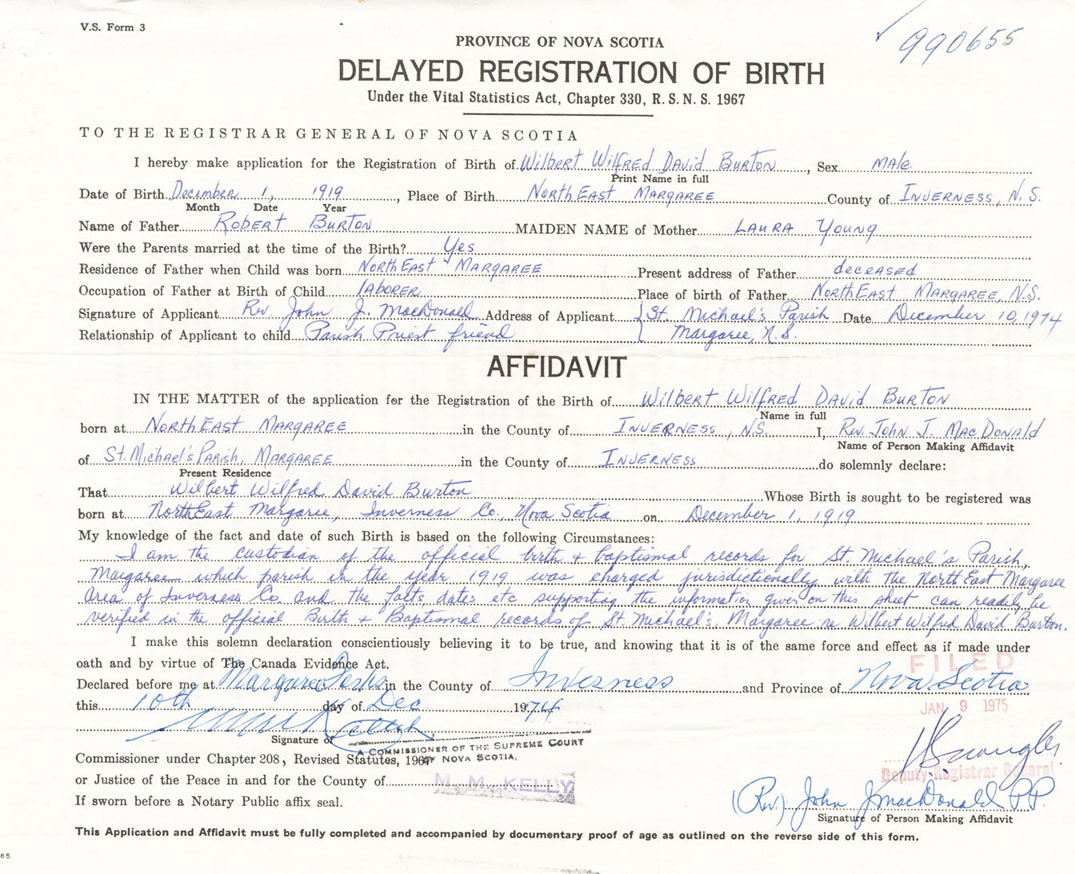 V.S. Form 3
990655
PROVINCE OF NOVA SCOTIA
DELAYED REGISTRATION OF BIRTH
Under the Vital Statistics Act, Chapter 330, R.S.N.S. 1967
TO THE REGISTRAR GENERAL OF NOVA SCOTIA
I hereby make application for the Registration of Birth of Wilbert Wilfred David Burton, Sex male
Print Name in full
Date of Birth December 1, 1919, Place of Birth NorthEast Margaree County of Inverness, N.S.
Month Date Year
Name of Father Robert Burton MAIDEN NAME of Mother Laura Young
Were the Parents married at the time of the Birth? Yes
Residence of Father when Child was born NorthEast Margaree Present address of Father deceased
Occupation of Father at Birth of Child laborer Place of birth of Father NorthEast Margaree, N.S.
Signature of Applicant Rev. John J. MacDonald Address of Applicant { St Michael's Parish Date December 10, 1974
Relationship of Applicant to child Parish Priest friend { Margaree, N.S.
AFFIDAVIT
IN THE MATTER of the application for the Registration of the Birth of Wilbert Wilfred David Burton
Name in full
born at NorthEast Margaree in the County of Inverness, N.S. I, Rev. John J. MacDonald
Name of Person Making Affidavit
of St. Michael's Parish, Margaree in the County of Inverness do solemnly declare:
Present Residence
That Wilbert Wilfred David Burton Whose Birth is sought to be registered was
born at NorthEast Margaree, Inverness Co., Nova Scotia on December 1, 1919
My knowledge of the fact and date of such Birth is based on the following Circumstances:
I am the custodian of the official birth + baptismal records for St. Michael's Parish,
Margaree which parish in the year 1919 was charged jurisdictionally with the North East Margaree
Area of Inverness Co. and the facts dates etc supporting the information given on this sheet can readily be
verified in the official Birth + Baptismal records of St Michael's, Margaree re Wilbert Wilfred David Burton.
I make this solemn declaration conscientiously believing it to be true, and knowing that it is of the same force and effect as if made under
oath and by virtue of The Canada Evidence Act.
FILED
Declared before me at Margaree Forks in the County of Inverness and Province of Nova Scotia
this 10th day of Dec 1974
JAN 9 1975
Signature of
A COMMISSIONER OF THE SUPREME COURT
OF NOVA SCOTIA.
Commissioner under Chapter 208, Revised Statutes, 1967
Deputy Registrar General
or Justice of the Peace in and for the County of M. M. KELLY
If sworn before a Notary Public affix seal.
(Rev.) John J MacDonald P.P.
Signature of Person Making Affidavit
This Application and Affidavit must be fully completed and accompanied by documentary proof of age as outlined on the reverse side of this form.
85